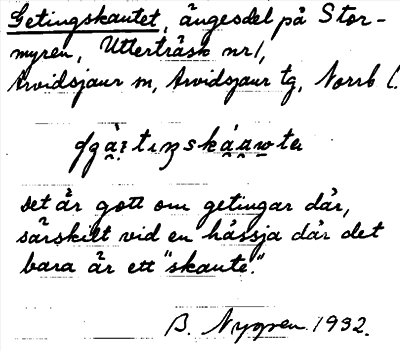 Getingskautet, ängesdel på Stor-
myren, Utterträsk nr1,
Arvidsjaur sn, Arvidsjaur tg, Norrb l.
det är gott om getingar där,
särskilt vid en hässja där det
bara är ett "skaute."
B. Nygren 1932.